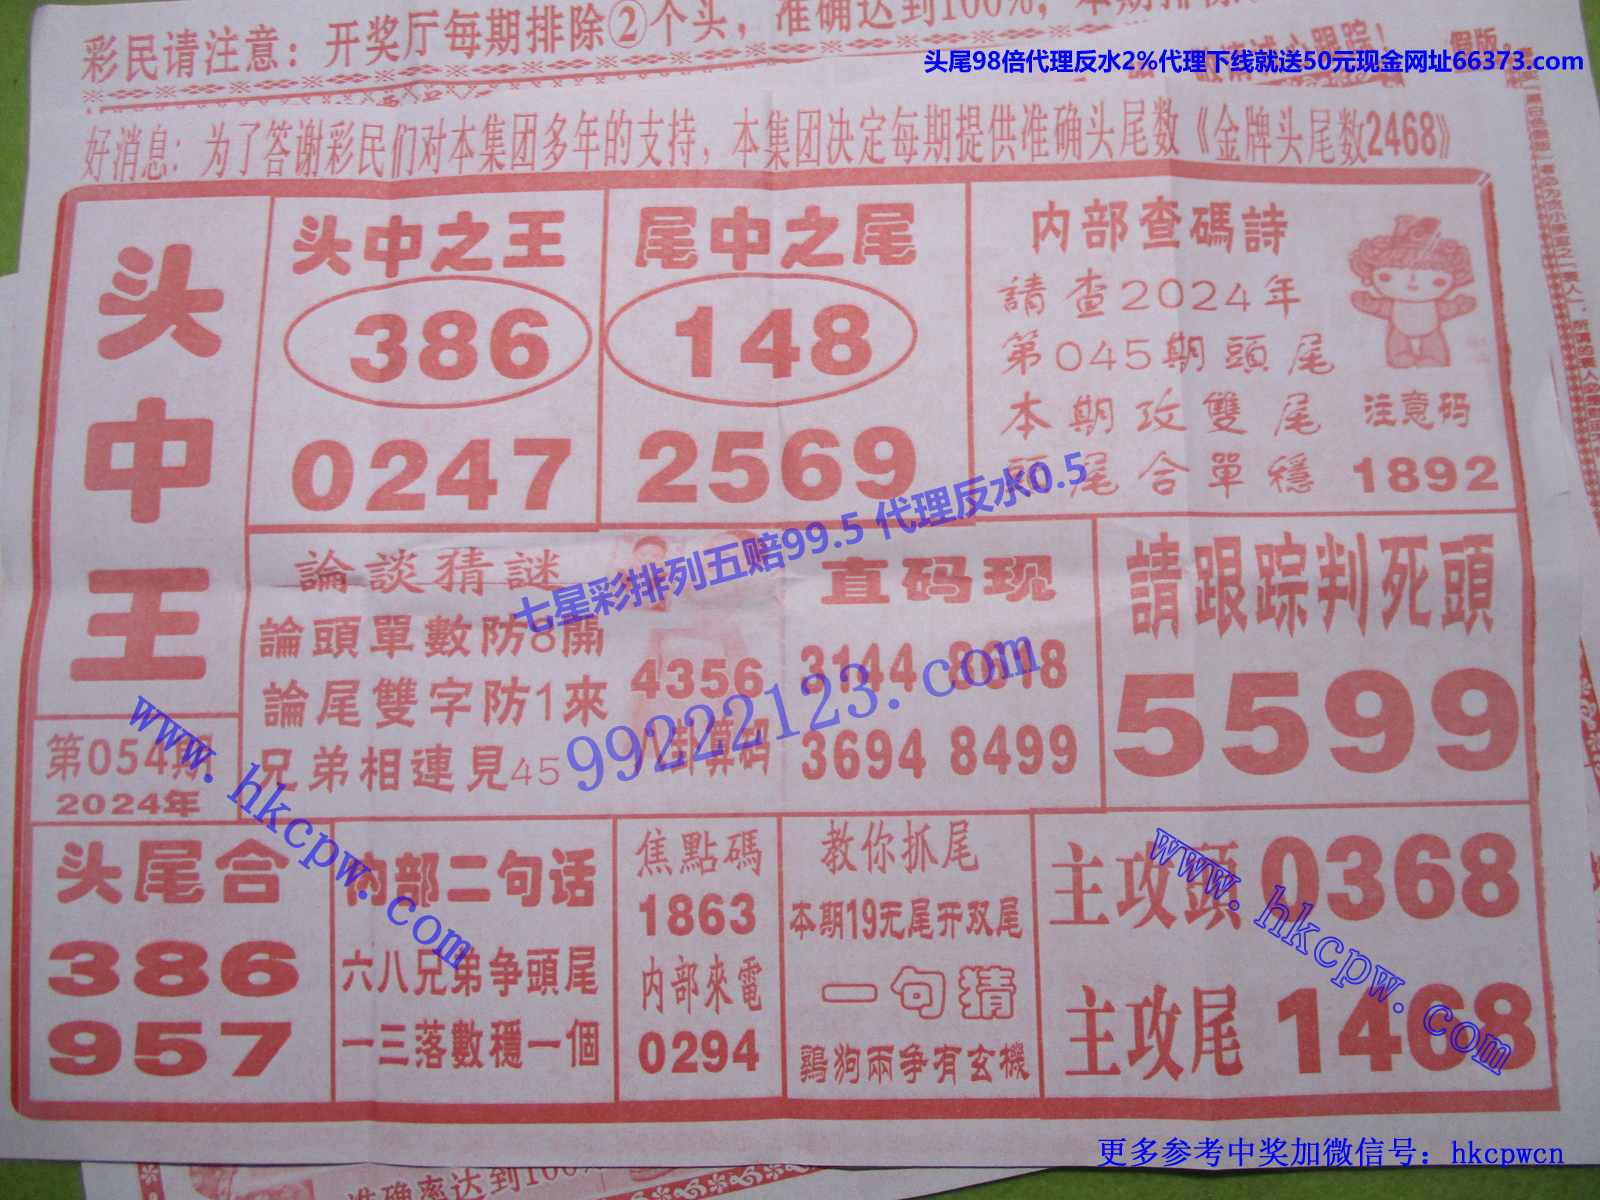 彩民请注意：开奖厅每期排除②个头，准确达到100%，本期排
头尾98倍代理反水2%代理下线就送50元现金网址66373.com
好消息：为了答谢彩民们对本集团多年的支持，本集团决定每期提供准确头尾数《金牌头尾数2468》
头中王
第054期
2024年
头中之王
386
0247
尾中之尾
148
2569
内部查碼詩
請查2024年
第045期頭尾
本期攻雙尾
頭尾合單穩
注意码
1892
論談猜謎
論頭單數防8開
論尾雙字防1來
兄弟相連見45
4356
八卦算码
直码现
3144 8618
3694 8499
請跟踪判死頭
5599
七星彩排列五赔99.5 代理反水0.5
99222123.com
www.hkcpw.com
头尾合
386
957
内部二句话
六八兄弟争頭尾
一三落數穩一個
焦點碼
1863
内部來電
0294
教你抓尾
本期19无尾开双尾
一句猜
鷄狗兩争有玄機
主攻頭 0368
主攻尾 1468
www.hkcpw.com
准确率达到100%
更多参考中奖加微信号：hkcpwcn